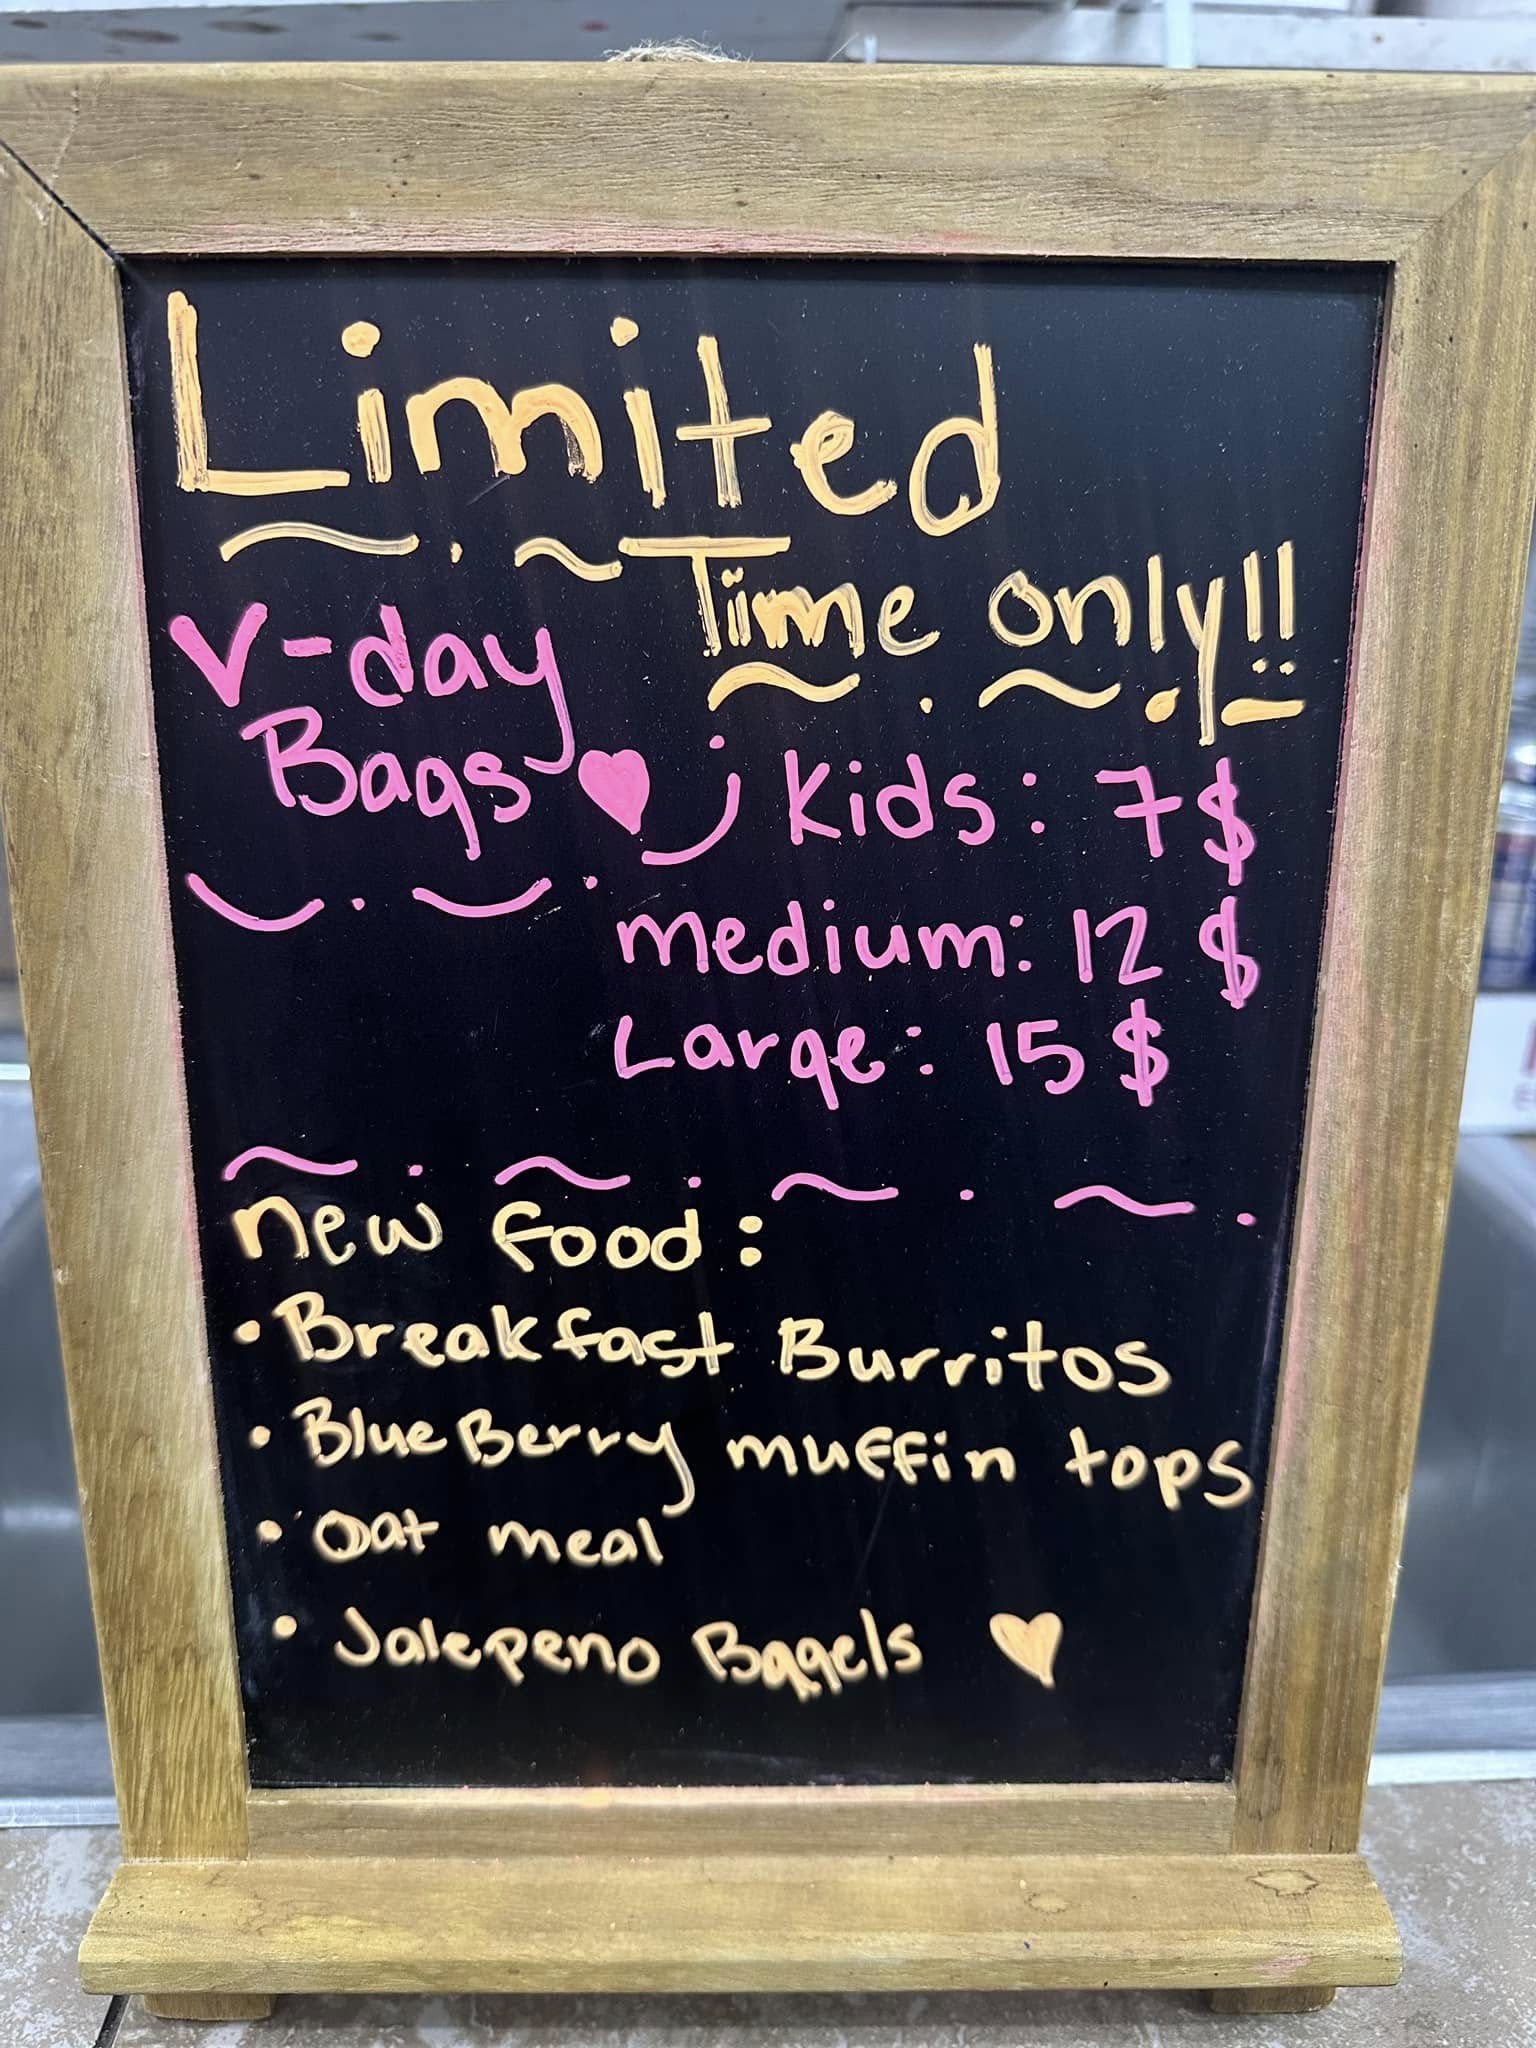 Limited
Time only!!
V-day
Bags
Kids: 7$
medium: 12 $
Large: 15 $
new food:
• Breakfast Burritos
• BlueBerry muffin tops
• Oat meal
• Jalepeno Bagels